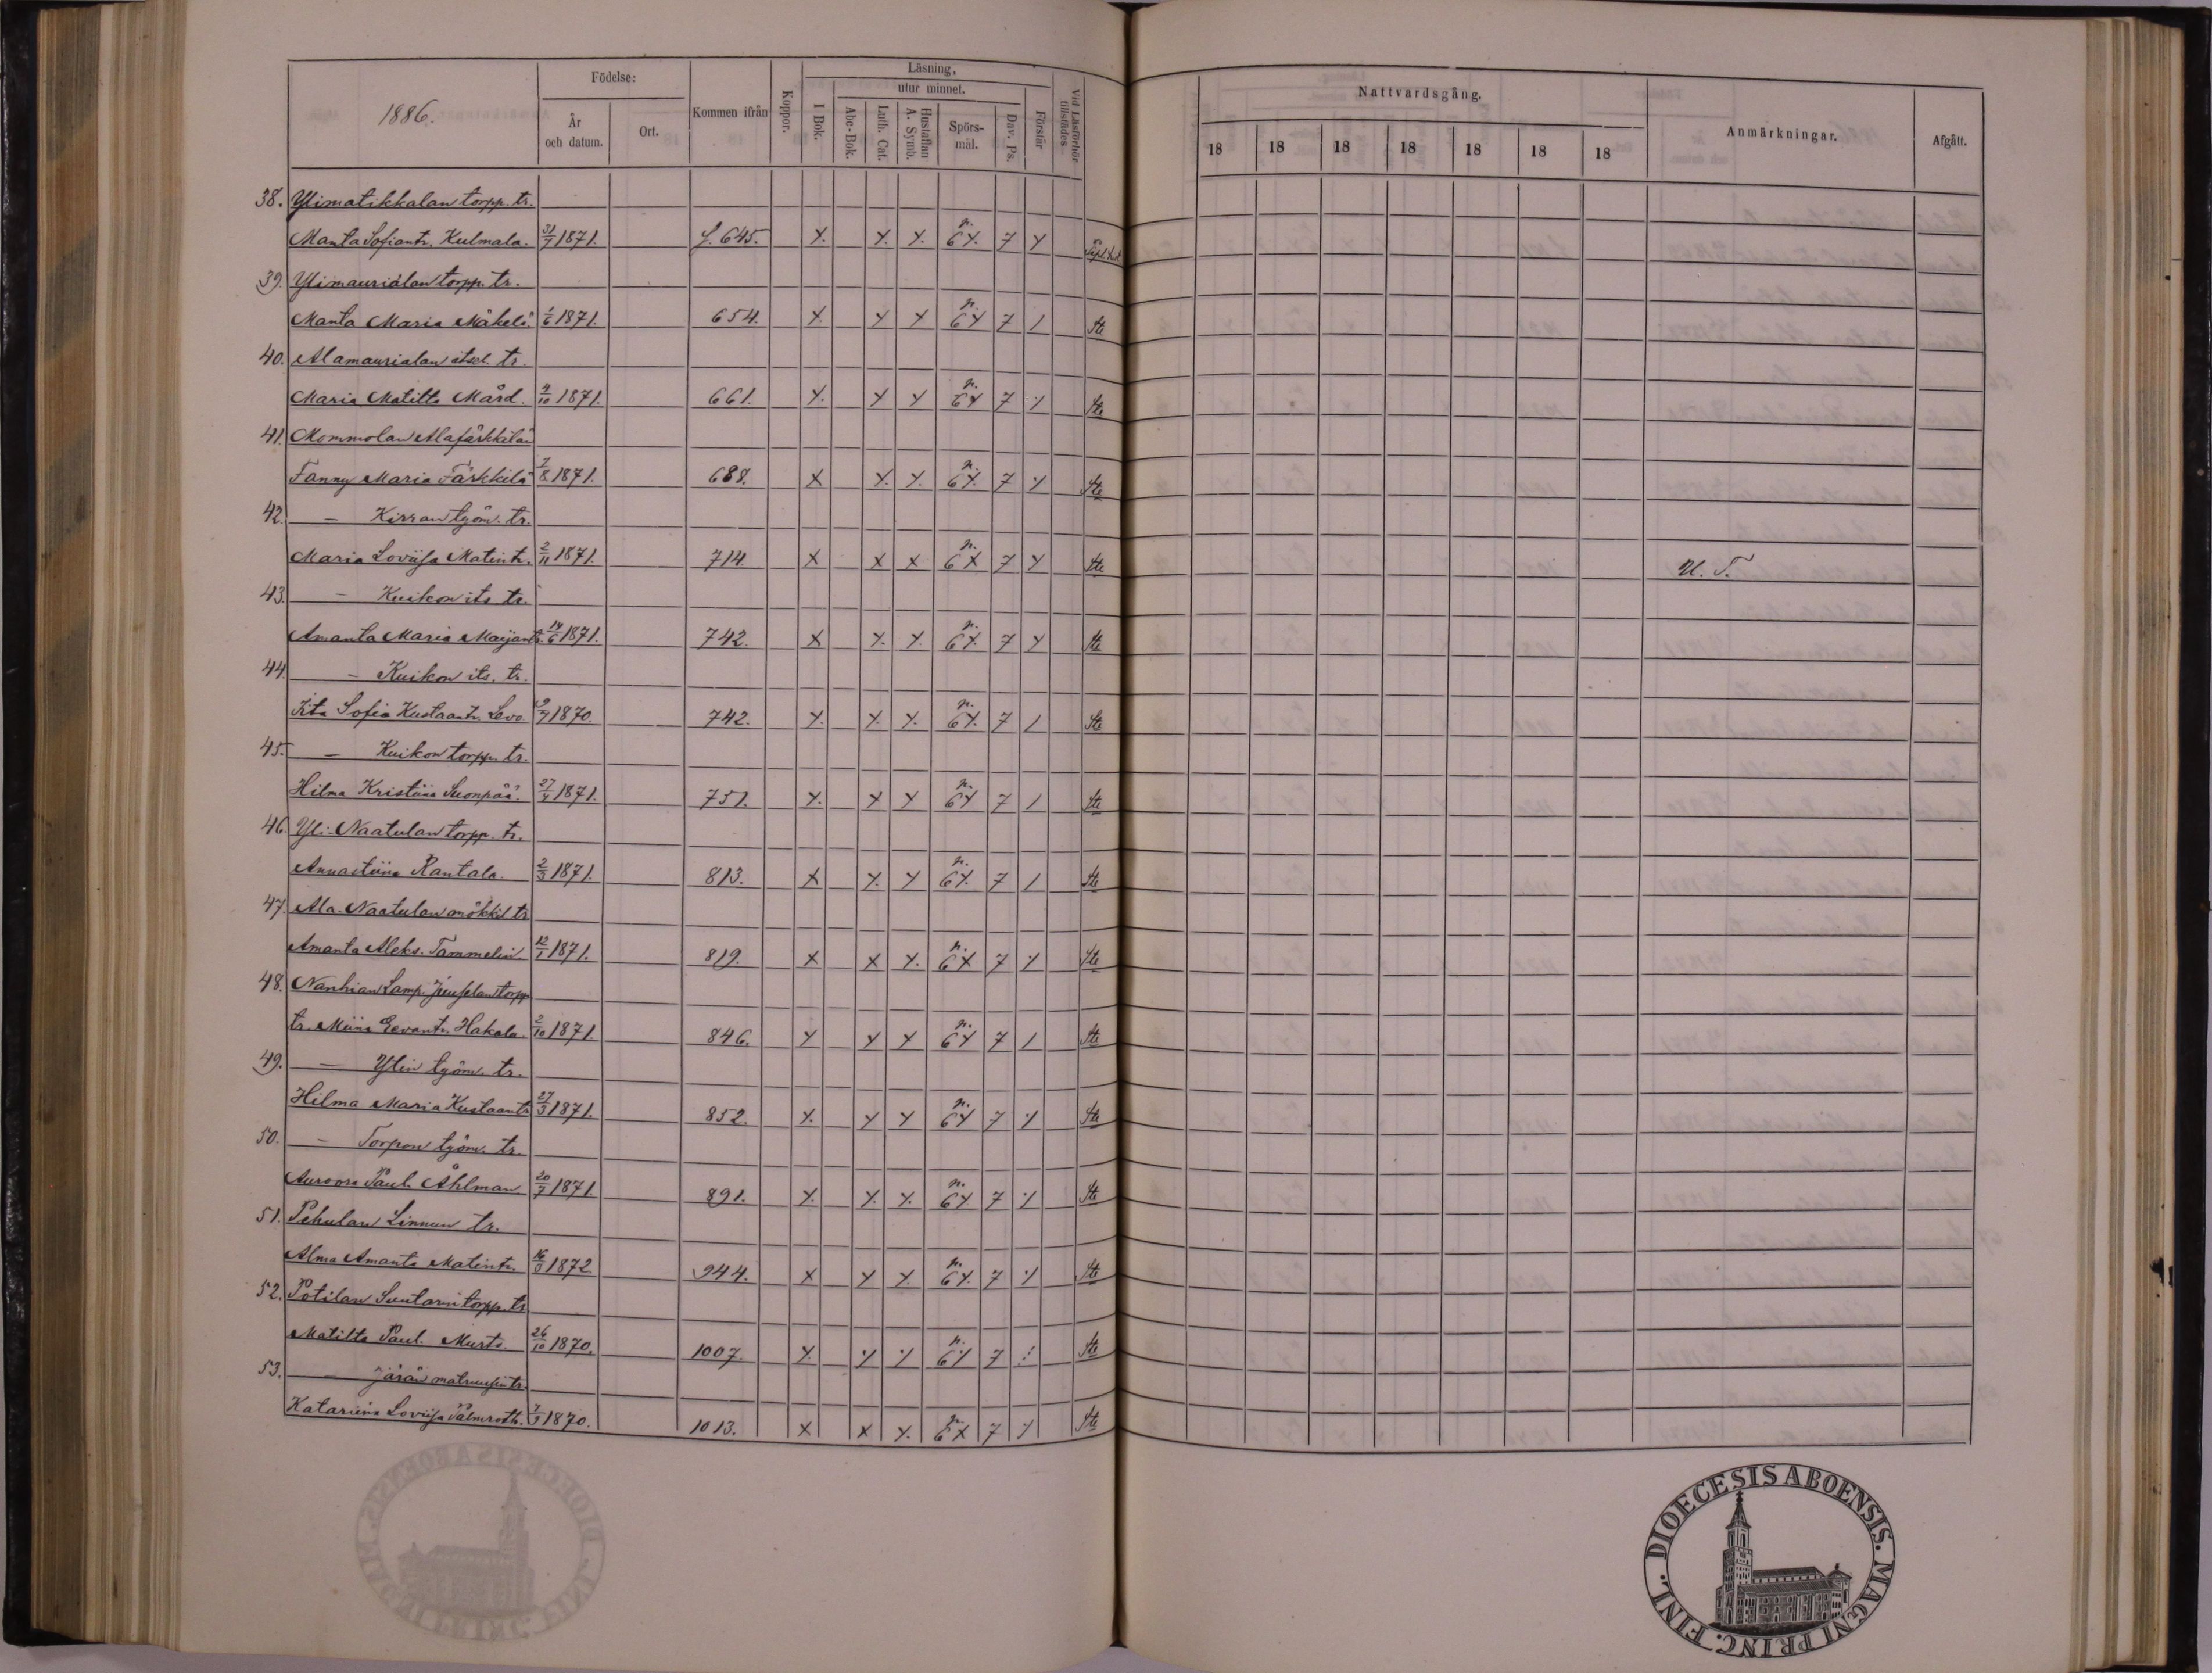 1886.
Födelse:
År och datum.
Ort.
Kommen ifrån
Koppor.
Läsning,
utur minnet.
I Bok.
Abc-Bok.
Luth. Cat.
Hustaflan A. Symb.
Spörs-mål.
Dav. Ps.
Förstår
Vid Läsförhör tillstädes
Nattvardsgång.
18 18 18 18 18 18 18
Anmärkningar.
Afgått.
38. Ylimatikkalan torpp. tr.
Manta Sofiantr. Kulmala. 31/7 1871. S. 645. X. X. X. n. 6X. 7 X
39. Ylimaurialan torpp. tr.
Manta Maria Mäkelä 1/6 1871. 654. X. X X n. 6X 7 / Ste
40. Alamaurialan itsel. tr.
Maria Matilta Mård. 4/10 1871. 661. X. X X n. 6X 7 X Ste
41. Mommolan Alafärkkilän
Fanny Maria Färkkilä 7/8 1871. 688. X X. X. n. 6X. 7 X Ste
42. – Kirran työm. tr.
Maria Loviisa Matintr. 2/11 1871. 714. X X X n. 6X 7 X Ste U. T.
43. – Kuikon its. tr.
Amanta Maria Maijantr. 14/6 1871. 742. X X. X. n. 6X. 7 X Ste
44. – Kuikon its. tr.
Iita Sofia Kustaantr. Levo 1870. 742. X. X. X. n. 6X. 7 / Ste
45. – Kuikon torpp. tr.
Hilma Kristiina Suonpää. 27/4 1871. 751. X. X X n. 6X 7 / Ste
46. Yli-Naatulan torpp. tr.
Annastiina Rantala. 2/3 1871. 813. X X. X n. 6X. 7 / Ste
47. Ala-Naatulan mökkil. tr.
Amanta Aleks. Tammelin 12/1 1871. 819. X X X. n. 6X 7 X Ste
48. Nanhian Lamp. torpp
tr. Miina Eevantr. Hakala. 2/10 1871. 846. X X X n. 6X 7 / Ste
49. – Ylin työm. tr.
Hilma Maria Kustaantr. 27/3 1871. 852. X. X X n. 6X 7 X Ste
50. – Torpon työm. tr.
Auroora Paul. Åhlman 20/7 1871. 891. X. X. X. n. 6X 7 X Ste
51. Pehulan Linnun tr.
Alma Amanta Matintr. 16/3 1872 944. X X X. n. 6X. 7 X Ste
52. Potilan Suutarin torpp. tr
Matilta Paul. Murto. 26/10 1870. 1007. X. X X n. 6X 7 Ste
53. – Järän matruusin tr.
Katariina Loviisa Palmroth. 7/9 1870. 1013. X X X. n. 6X 7 X Ste
DIOECESIS ABOENSIS. MAGNI PRINC. FINL.